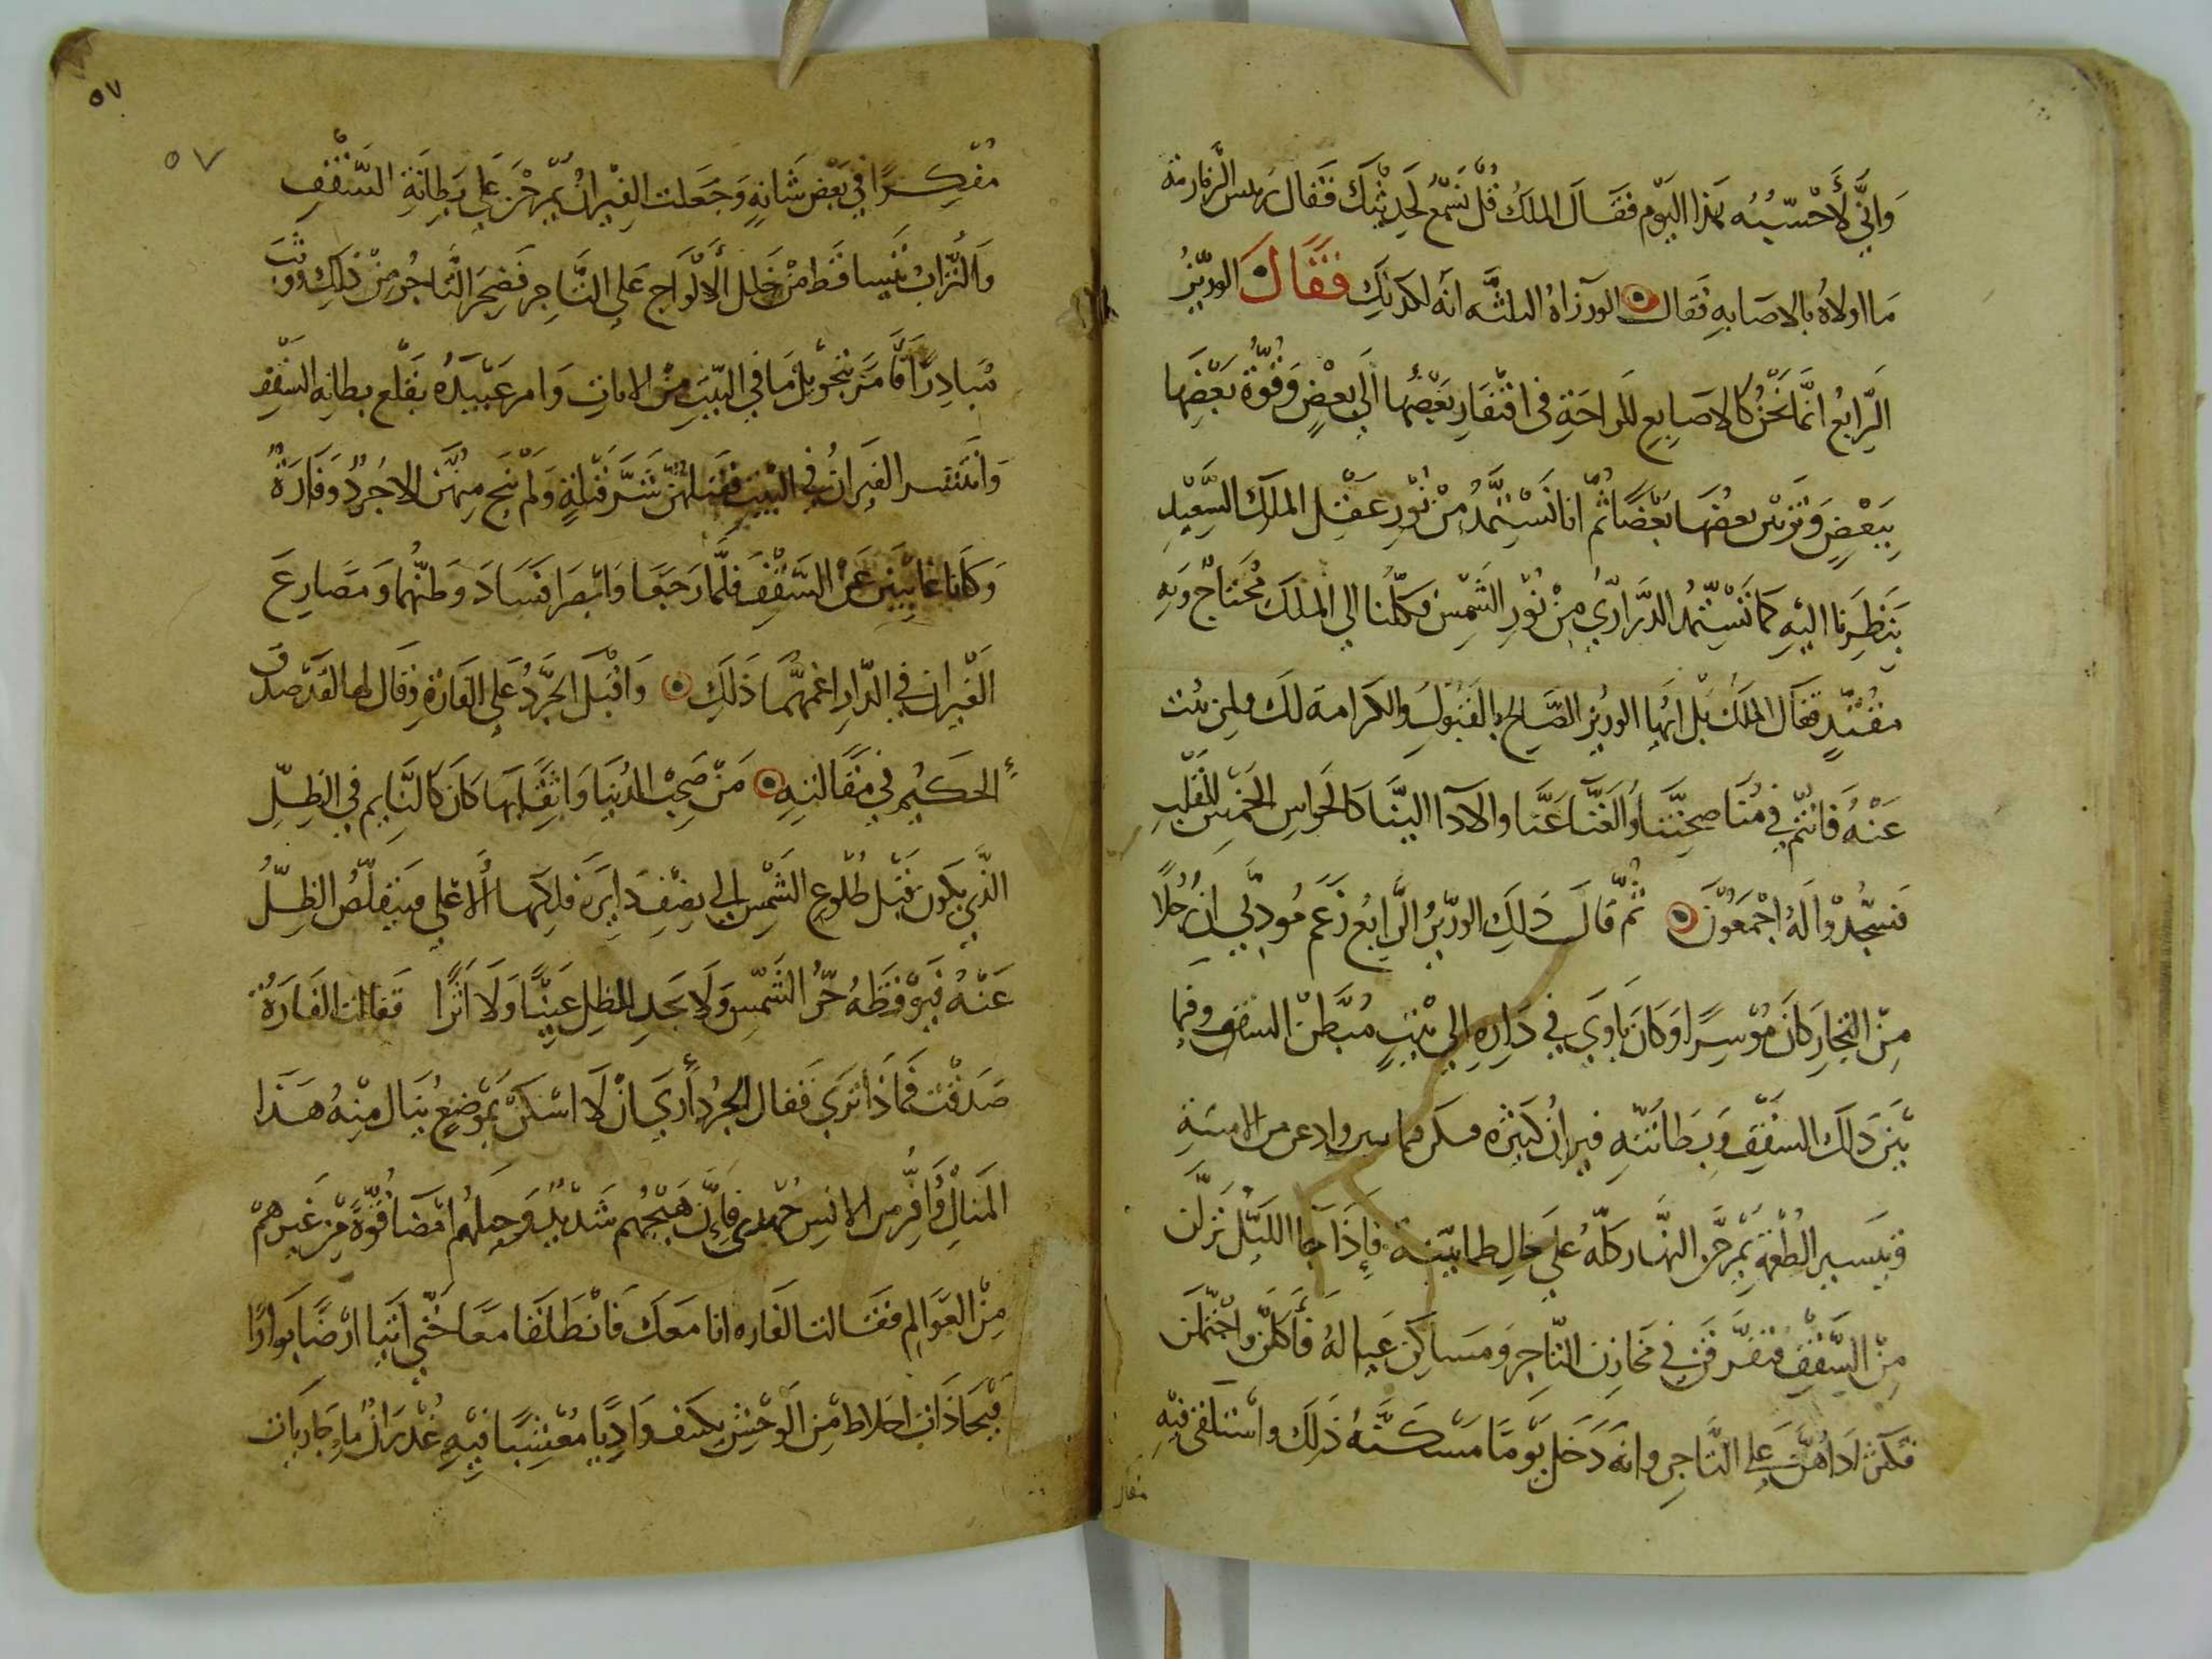 وَانِّي لَأَحْسِبُنُه بهذا اليَوْم فَقَالَ الملكُ قُلْ نَسْمَعْ لحَدِيْثِكَ فَقَال رئيس الزمازمة
مَا اولاهُ بالاصَابهِ فقال الوزراهُ الثلثه انه لكذلِكَ فَقَالَ الوزيرُ
الرّابعُ انّمَا نَحْنُ كالاصَابِعِ للراحَةِ في افْتِقَارِ بَعْضُها الَي بَعْضٍ وَقُوَّة بَعْضِهَا
بِبَعْضٍ وَتزين بعضِهَا بَعْضًا ثُمّ انا نَسْتَمِدُّ مِنْ نُوْرِ عَقْل الملكَ السَّعِيْدِ
بِنَظَرِنا اليْهِ كمَا تَسْتَمِدُ الدَّرَارِيُ مِنْ نُوْرِ الشّمِسْ فكلّنا الي الملكَ مُحْتَاجْ وَبهِ
مقْتَدٍ فقال الملكُ بَلْ ايُّهَا الوزيرُ الصَّالِح بالقَبُوْلِ والكرامة لك ولمن نُبْت
عَنْهُ فَانْتُمْ فِي مُنَاصحِتنَا وَالغَنَّا عَنَّا والادَا الينَا كالحَواسِ الخَمْسِ للقَلْبِ
فسَجَدُوْا لَهُ اجْمَعُوْنَ ثُمّ قالَ ذَلِكَ الوزيْرُ الرَّابِعُ زَعَم مُودبِي انّ رجُلًا
مِنْ التجارِ كانَ مُوْسِرًا وَكانَ يَاوِي فِي دَارِهِ الي بَيْتٍ مُبَطّنْ السقف وفيما
بَيْنَ ذَلكَ السَقْفِ وَبِطَانَتِهِ فيرانٌ كَثِيْرَه من الامنةِ
وتيسير الطُعْمةِ يَمْرَحْنَ النهَار كلّهُ علي حَالِ طمانينة فاِذَا جَا الليْلُ نَزلْنَ
مِنْ السَّقْفِ فتفَرّقنَ فِي مَخَازِن التّاجِرِ وَمسَاكِن عَيالهُ فَأكَلْنَ واحْتَمَلْنَ
فكثر اذَاهُنَّ عَلي التّاجِرِ وانه دَخَل يَوْمًا مَسْكَنَهُ ذَلِكَ واسْتَلقَى فيْهِ
مفكر
٥٧
٥٧
مُفْكِرًا فِي بَعْضِ شَانهِ وَجَعَلت الفِيْرانُ يَمْرَحْنَ عَلَي بِطَانَةِ السَّقْفِ
وَالتُّرَابُ يَتَساقَط مِنْ خَلل الألْوَاحِ عَلَى التَّاجِر فضَجِرَ التَّاجِرُ مِنْ ذلِكَ وَوَثَبَ
مُبادِرًا فأمَرَ بتحْوِيْلِ مَا فِي البَيْتِ مِنْ الاثاثِ وَامر عَبِيْدَهُ بقَلْعِ بطانهِ السَّقْفِ
وَانْتَشَر الفِيَرانُ فِي البَيْت فقتلهُنّ شَرّ قِتْلَةٍ وَلَمْ يَنْج مِنْهُنّ الا جُرذٌ وَفَارَةٌ
وَكَانا غايبَيْنِ عَنْ السَّقْفِ فلَمَّا رَجَعَا وَابْصَرا فسَادَ وَطنهُما وَمَصَارِعَ
الفَيْرانِ فِي الدّارِ اغَمّهُمَا ذَلَكَ وَاقبَلَ الجُرَذُ عَلي الفَارَةِ وَقال لها لقد صَدقَ
الحَكِيْم فِي مَقَالتِهِ مَنْ صَحِبَ الدُنيَا وَاثِقًا بهَا كَانَ كالنّايمِ فِي الظِلِّ
الذّي يكونُ قبْل طُلُوعِ الشّمْسِ الي نصْفِ دَايرَة فلَكهَا الأعْلي فيتقلّصُ الظِلُّ
عَنْهُ فيُوْقظَهُ حَرُّ الشّمْسِ وَلَا يجَدِ الظِلِ عَيْنًا وَلَا اثَرًا فقالت الفَارَةُ
صَدَقْتَ فمَاذَا تَرَي فَقال الجُرْذ أرَي انْ لَا اسْكن بمَوْضِعٍ يُنَال مِنْهُ هَذَا
المَنَالِ وَأفِرُّ من الانسِ جُهدي فإنّ هَيْجَهُم شَدِيْدٌ وَحِيلهُمْ امْضَا قوّةً مِنْ غَيرهمْ
مِنْ العَوالِم فقالت الفَاره انا مَعَكَ فانطلَقا مَعًا حَتّي اتَيا ارْضًا بوارًا
فيْها ذَات اخلاط مِن الوَحْش يكنف وَادِيًا مُعْشِبًا فيْهِ غُدْرَانٌ مَاءٍ جَارِيَات